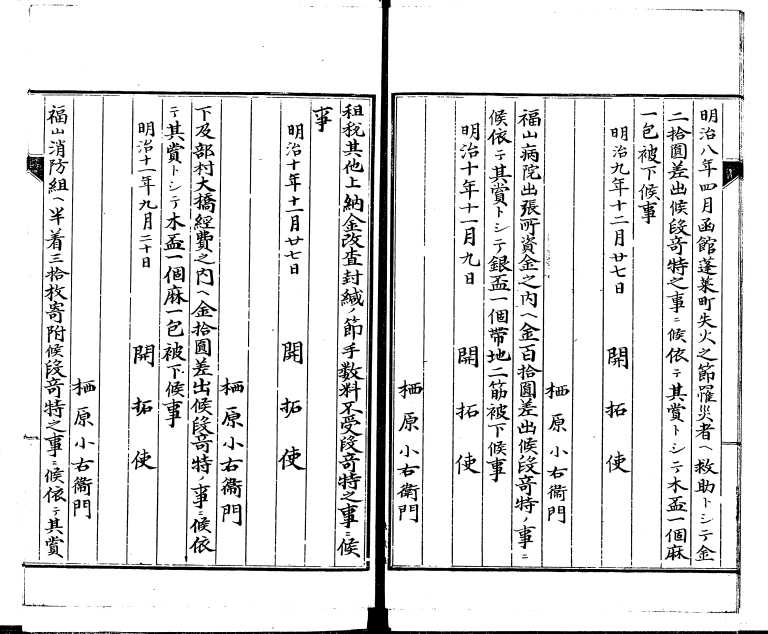 明治八年四月函館蓬萊町失火之節罹災者ヘ救助トシテ金
二拾圓差出候段竒特之事ニ候依テ其賞トシテ木盃一個麻
一包被下候事
明治九年十二月廿七日 開拓使
栖原小右衞門
福山病院出張所資金之内ヘ金百拾圓差出候段竒特ノ事ニ
候依テ其賞トシテ銀盃一個帶地二筋被下候事
明治十年十一月九日 開拓使
栖原小右衞門
租税其他上納金改査封緘ノ節手數料不受段竒特之事ニ候
事
明治十年十二月廿七日 開拓使
栖原小右衞門
下及部村大橋經費之内ヘ金拾圓差出候段竒特ノ事ニ候依
テ其賞トシテ木盃一個麻一包被下候事
明治十一年九月二十日 開拓使
栖原小右衞門
福山消防組ヘ半着三拾枚寄附候段竒特之事ニ候依テ其賞